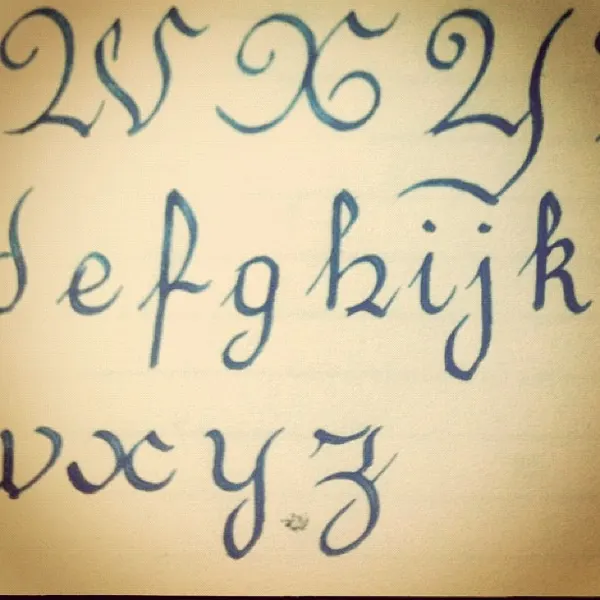 W X Y
d e f g h i j k
v x y z